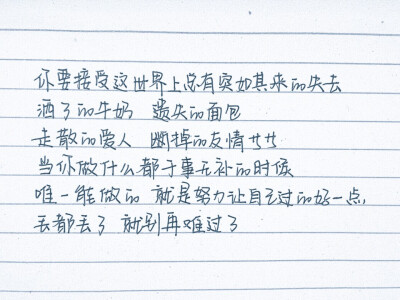 你要接受这世界上总有突如其来的失去
洒了的牛奶 遗失的面包
走散的爱人 断掉的友情
当你做什么都于事无补的时候
唯一能做的 就是努力让自己过的好一点,
丢都丢了 就别再难过了